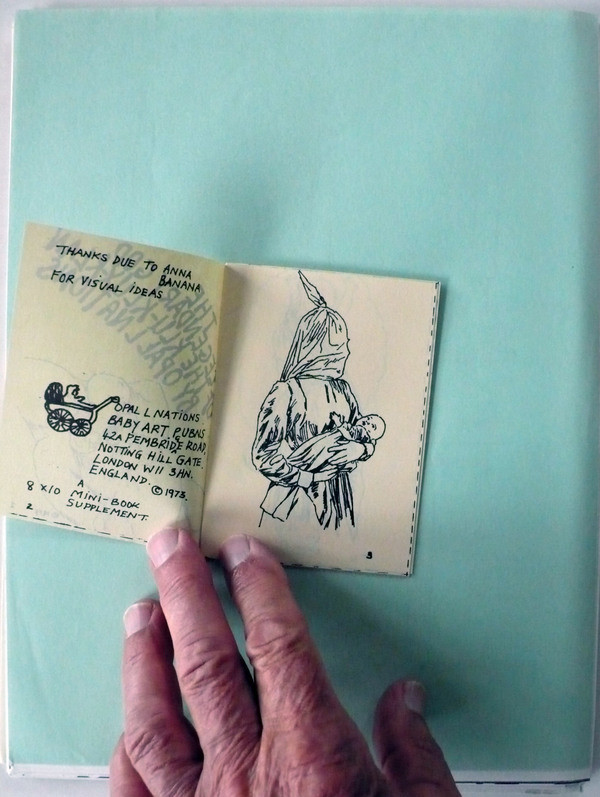 THANKS DUE TO ANNA
BANANA
FOR VISUAL IDEAS
OPAL L NATIONS
BABY ART PUBNS
42A PEMBRIDGE ROAD,
NOTTING HILL GATE,
LONDON W11 3HN.
ENGLAND.
© 1973.
8 X 10
A
MINI-BOOK
SUPPLEMENT.
2
3